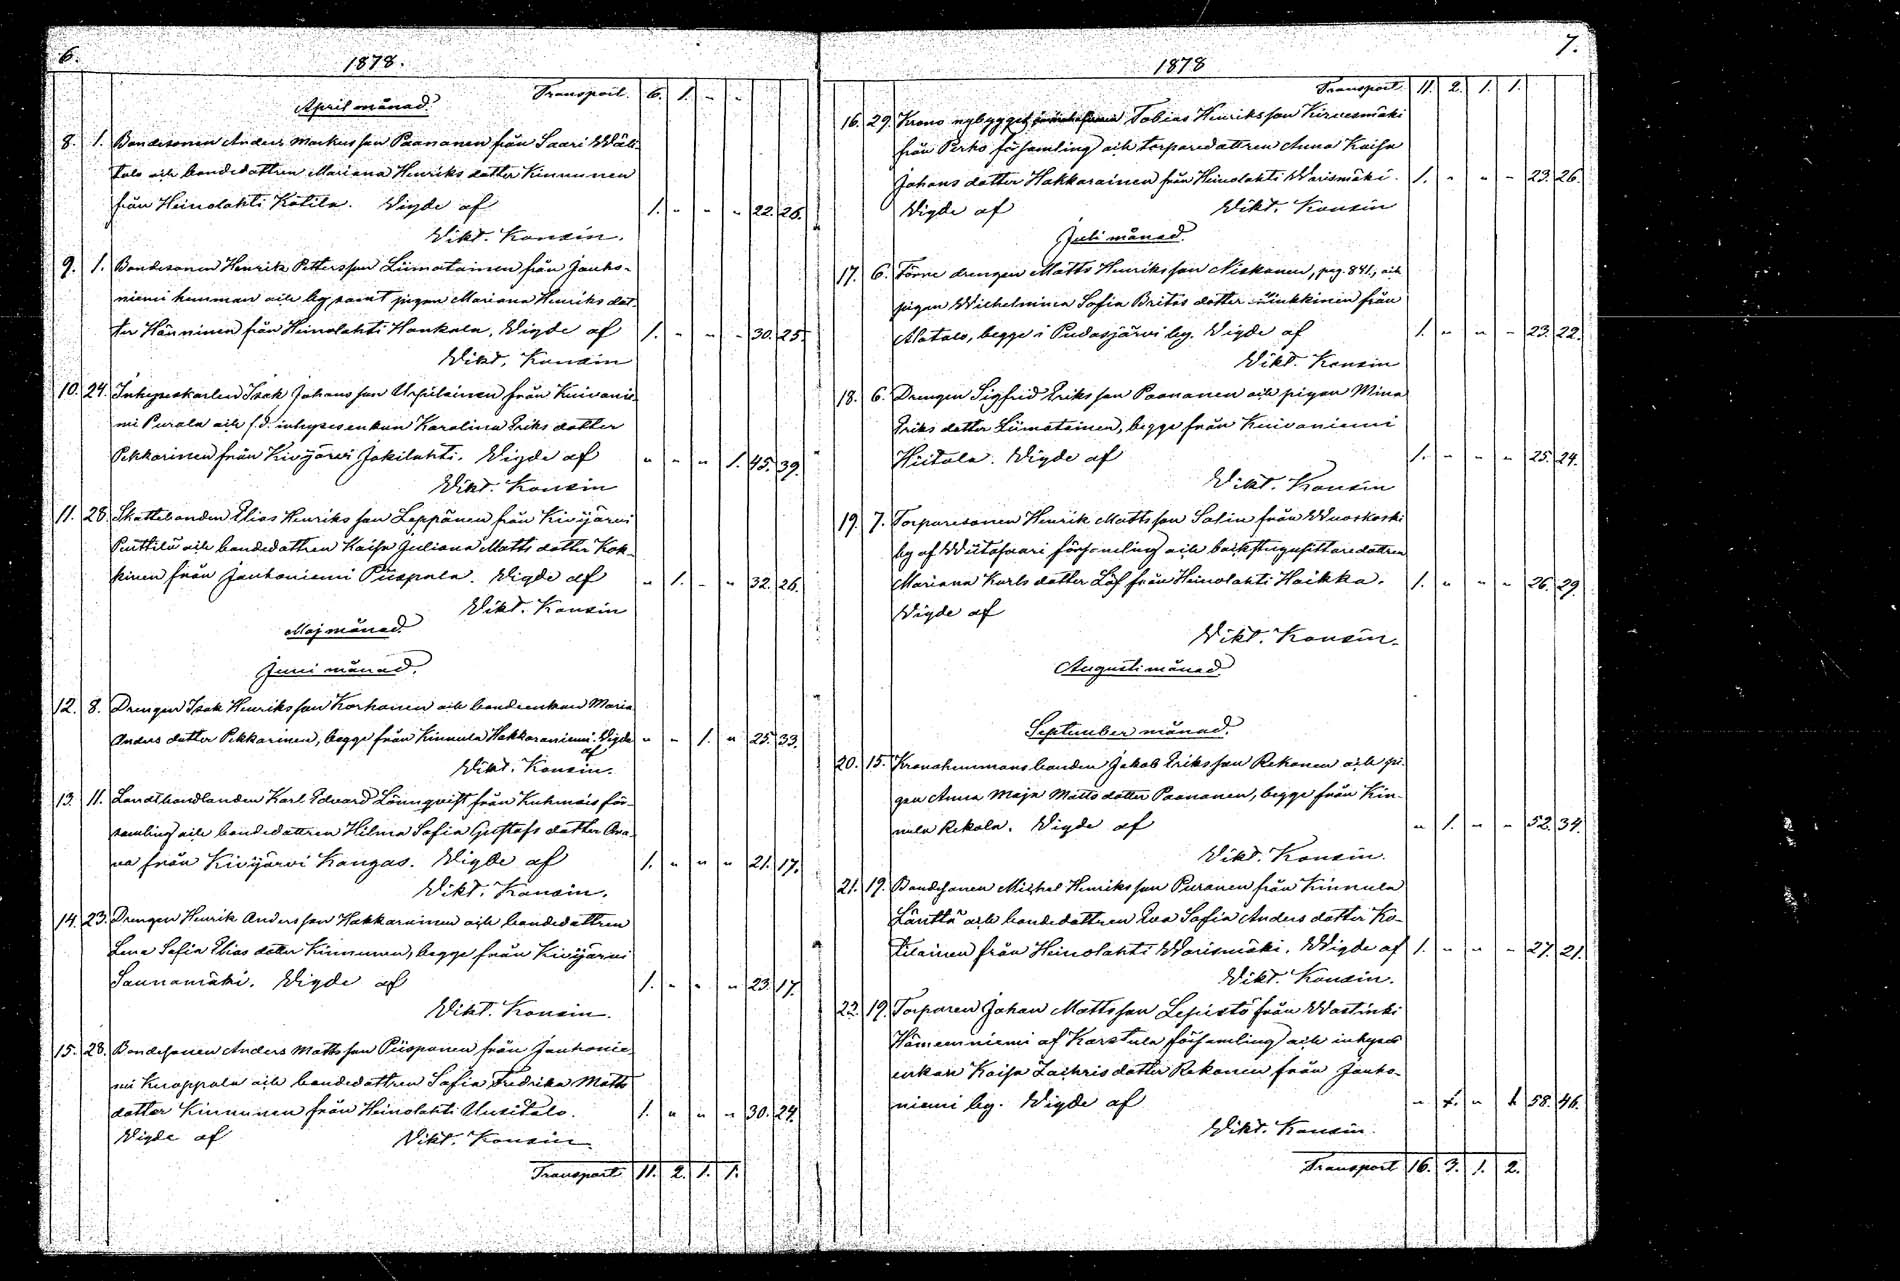 6.
1878.
Transport. 6. 1. - -
April månad.
8. 1. Bondesonen Anders Markusson Paananen från Saari Wäli-
talo och bondedottren Mariana Henriksdotter Kinnunen
från Heinolahti Kotila. Vigde af 1. " " " 22. 26.
Vikt. Konsin.
9. 1. Bondesonen Henrik Pettersson Liimatainen från Jauho-
niemi hemman och by samt pigan Mariana Henriksdot-
ter Hänninen från Heinolahti Honkala. Vigde af 1. " " " 30. 25.
Vikt. Konsin
10. 24. Inhyseskarlen Isak Johansson Urpilainen från Kuivanie-
mi Purala och f.d. inhysesenkan Karolina Eriksdotter
Pekkarinen från Kivijärvi Jokilahti. Vigde af " " " 1. 45. 39.
Vikt. Konsin
11. 28. Skattebonden Elias Henriksson Leppänen från Kivijärvi
Penttilä och bondedottren Kaisa Juliana Mattsdotter Kok-
kinen från Jauhoniemi Piispala. Vigde af " 1. " " 32. 26.
Vikt. Konsin
Maj månad.
Juni månad.
12. 8. Drengen Isak Henriksson Korhonen och bondeenkan Maria
Andersdotter Pekkarinen, begge från Kinnula Hakkaraniemi. Vigde " " 1. " 25. 33.
af
Vikt. Konsin.
13. 11. Landthandlanden Karl Edvard Lönnqvist från Kuhmois för-
samling och bondedottren Hilma Sofia Gustafsdotter Ora-
va från Kivijärvi Kangas. Vigde af 1. " " " 21. 17.
Vikt. Konsin.
14. 23. Drengen Henrik Andersson Hakkarainen och bondedottren
Lena Sofia Eliasdotter Kinnunen, begge från Kivijärvi
Saunamäki. Vigde af 1. " " " 23. 17.
Vikt. Konsin.
15. 28. Bondesonen Anders Mattsson Piispanen från Jauhonie-
mi Knoppala och bondedottren Sofia Fredrika Matts
dotter Kinnunen från Heinolahti Uusitalo. 1. " " " 30. 24.
Vigde af Vikt. Konsin
Transport 11. 2. 1. 1.
7.
1878
Transport. 11. 2. 1. 1.
16. 29. Krono nybygget Tobias Henriksson Kirvesmäki
från Perho församling och torparedottren Anna Kaisa
Johansdotter Hakkarainen från Heinolahti Warismäki. 1. " " " 23. 26.
Vigde af Vikt. Konsin
Juli månad.
17. 6. Förre drengen Matts Henriksson Niskanen, pag. 841, och
pigan Wilhelmina Sofia Britasdotter från
Alatalo, begge i Pudasjärvi by. Vigde af 1. " " " 23. 22.
Vikt. Konsin
18. 6. Drengen Sigfrid Eriksson Paananen och pigan Mina
Eriksdotter Liimatainen, begge från Kuivaniemi
Hiitola. Vigde af 1. " " " 25. 24.
Vikt. Konsin
19. 7. Torparesonen Henrik Mattsson Salin från Wuoskoski
by af Wiitasaari församling och backstugusittaredottren
Mariana Karlsdotter Löf från Heinolahti Hoikka. 1. " " " 26. 29.
Vigde af
Vikt. Konsin.
Augusti månad
September månad.
20. 15. Kronohemmansbonden Jakob Eriksson Rekonen och pi-
gan Anna Maja Mattsdotter Paananen, begge från Kin-
nula Rekola. Vigde af " 1. " " 52. 34.
Vikt. Konsin.
21. 19. Bondesonen Michel Henriksson Puranen från Kinnula
Länttä och bondedottren Eva Sofia Andersdotter Ko-
tilainen från Heinolahti Warismäki. Vigde af 1. " " " 27. 21.
Vikt. Konsin.
22. 19. Torparen Johan Mattsson Lepistö från Wastinki
Hämeenniemi af Karstula församling och inhyses
enkan Kaisa Zachrisdotter Rekonen från Jauho-
niemi by. Vigde af " 1. " 1. 58. 46.
Vikt. Konsin.
Transport 16. 3. 1. 2.